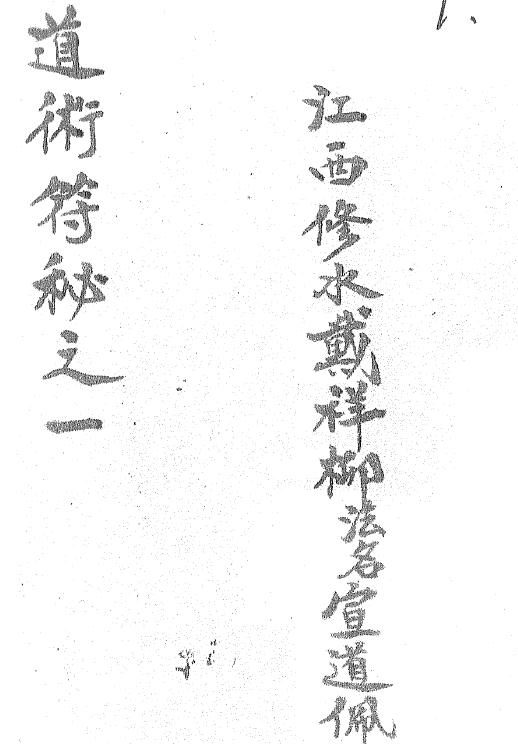 江西修水戴祥柳法名宣道佩
道術符秘之一